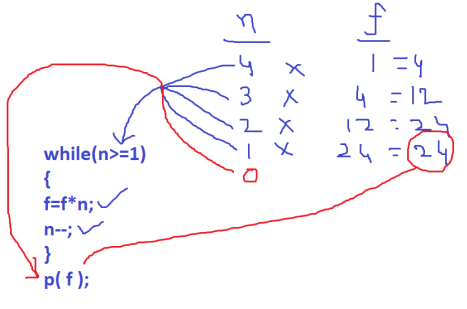 n f
4 x 1 = 4
3 x 4 = 12
2 x 12 = 24
1 x 24 = 24
0
while(n>=1)
{
f=f*n;
n--;
}
p( f );